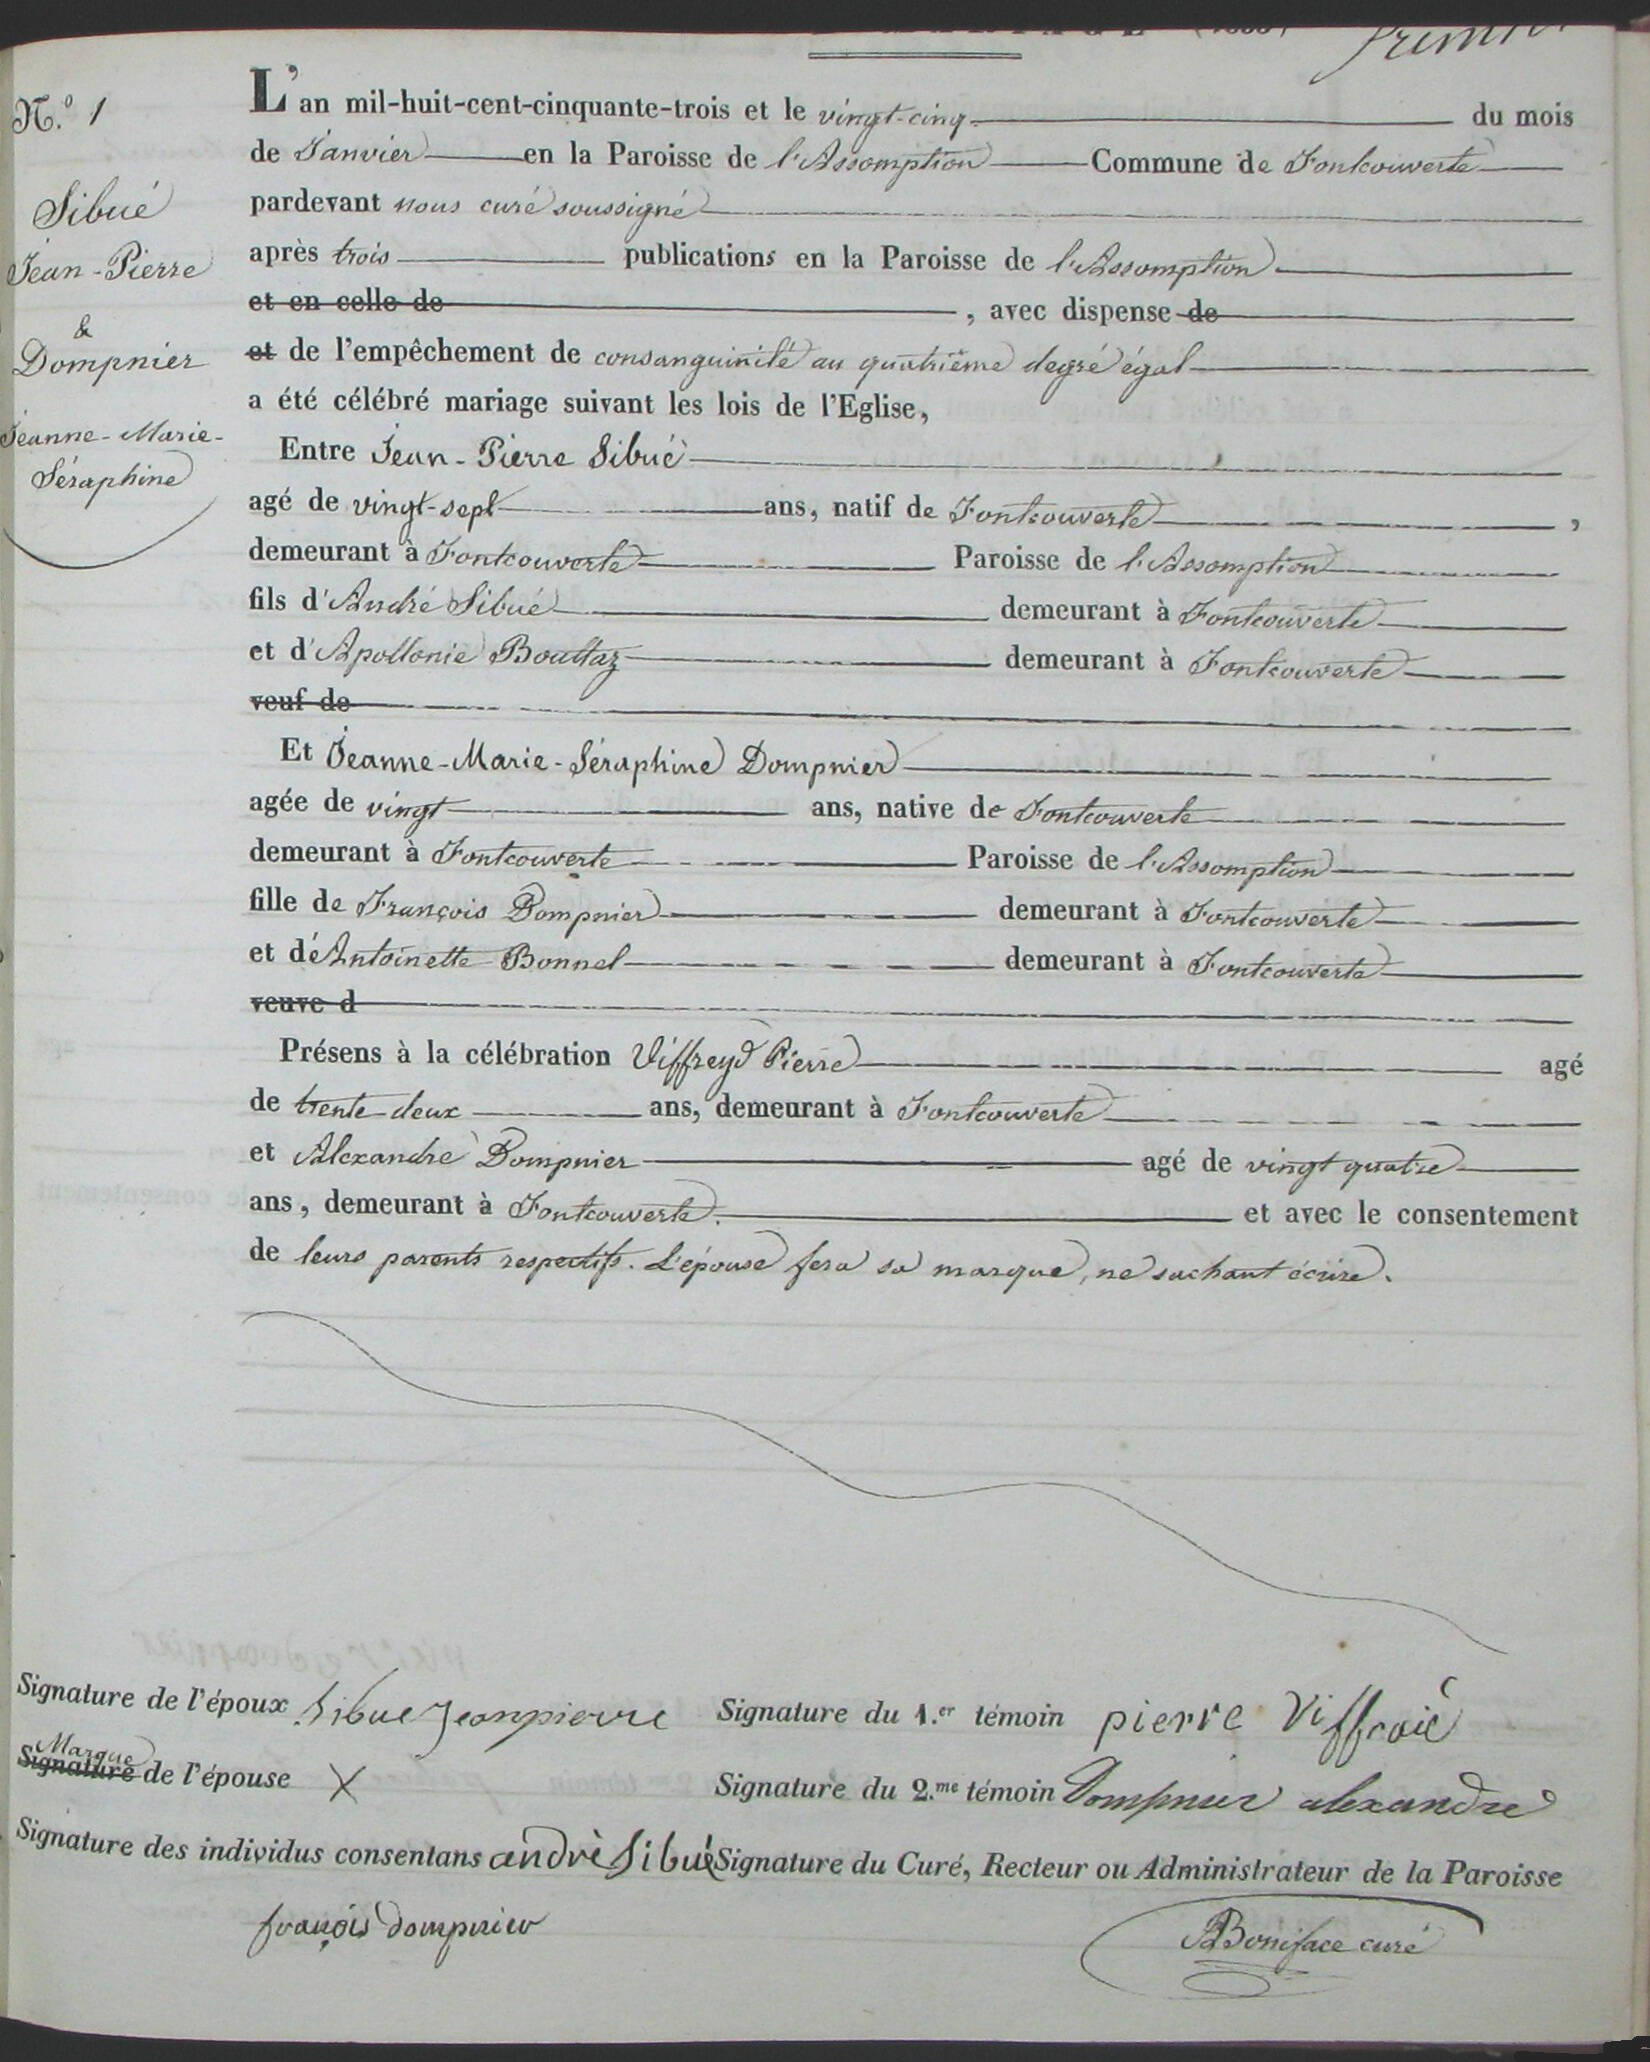 N.º 1
Sibué
Jean-Pierre
&
Dompnier
Jeanne-Marie-
Séraphine
L'an mil-huit-cent-cinquante-trois et le vingt-cinq du mois
de Janvier en la Paroisse de l'Assomption Commune de Fontcouverte
pardevant nous curé soussigné
après trois publications en la Paroisse de l'Assomption
et en celle de , avec dispense de
et de l'empêchement de consanguinité au quatrième degré égal
a été célébré mariage suivant les lois de l'Eglise,
Entre Jean-Pierre Sibué
agé de vingt-sept ans, natif de Fontcouverte ,
demeurant à Fontcouverte Paroisse de l'Assomption
fils d'André Sibué demeurant à Fontcouverte
et d'Apollonie Bouttaz demeurant à Fontcouverte
veuf de
Et Jeanne-Marie-Séraphine Dompnier
agée de vingt ans, native de Fontcouverte
demeurant à Fontcouverte Paroisse de l'Assomption
fille de François Dompnier demeurant à Fontcouverte
et d'Antoinette Bonnel demeurant à Fontcouverte
veuve d
Présens à la célébration Viffreyd Pierre agé
de trente deux ans, demeurant à Fontcouverte
et Alexandre Dompnier agé de vingt quatre
ans, demeurant à Fontcouverte. et avec le consentement
de leurs parents respectifs. L'épouse fera sa marque, ne sachant écrire.
Signature de l'époux Sibue Jeanpierre Signature du 1.er témoin pierre Viffraié
Marque
Signature de l'épouse X Signature du 2.me témoin Dompnier alexandre
Signature des individus consentans andrè Sibué Signature du Curé, Recteur ou Administrateur de la Paroisse
françois dompnier Boniface curé